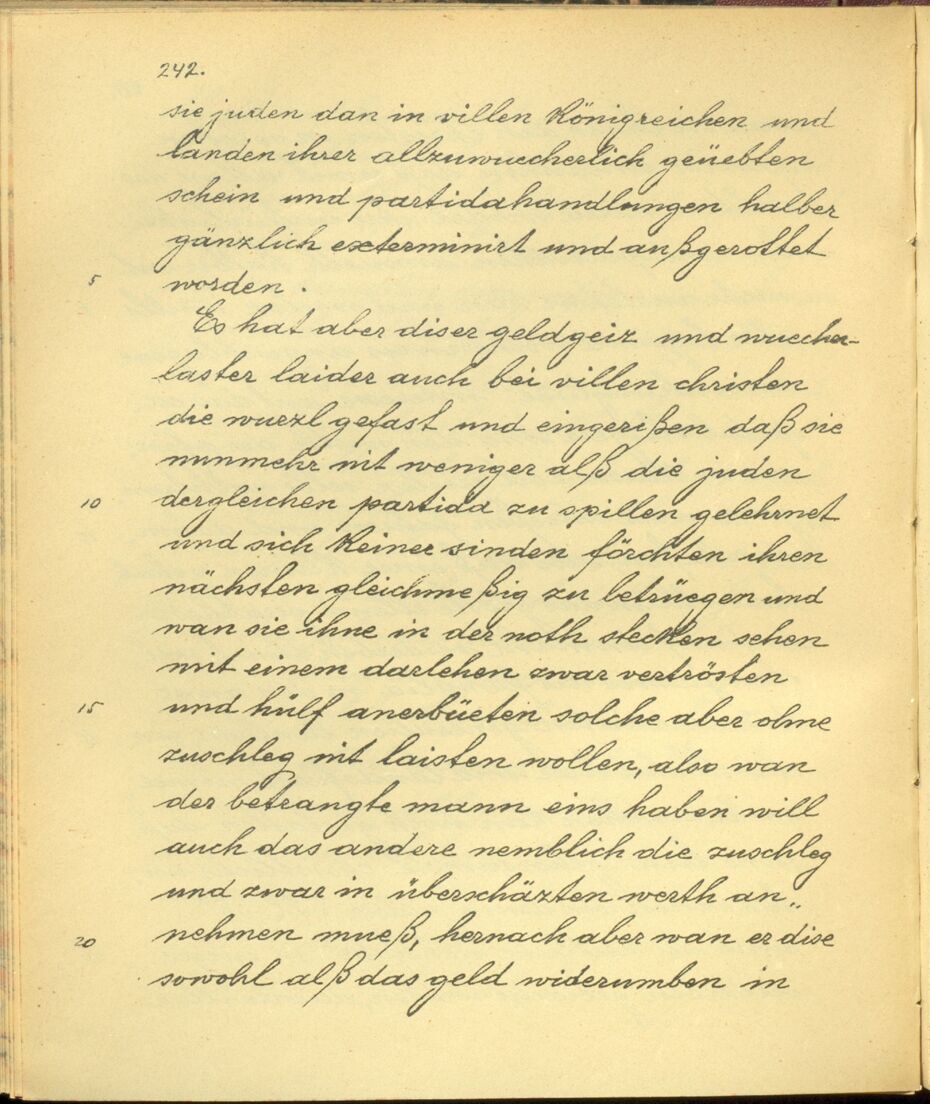 242.
sie juden dan in villen Königreichen und
landen ihrer allzuwuecherlich geüebten
schein und partidahandlungen halber
gänzlich exterminirt und außgerottet
5 worden.
Es hat aber diser geldgeiz und wuecher-
laster laider auch bei villen christen
die wurzl gefast und eingerißen daß sie
nunmehr nit weniger alß die juden
10 dergleichen partida zu spillen gelehrnet
und sich keiner sinden förchten ihren
nächsten gleichmeßig zu betrüegen und
wan sie ihne in der noth stecken sehen
mit einem darlehen zwar vertrösten
15 und hülf anerbüeten solche aber ohne
zuschleg nit laisten wollen, also wan
der betrangte mann eins haben will
auch das andere nemblich die zuschleg
und zwar in überschäzten werth an„
20 nehmen mueß, hernach aber wan er dise
sowohl alß das geld widerumben in